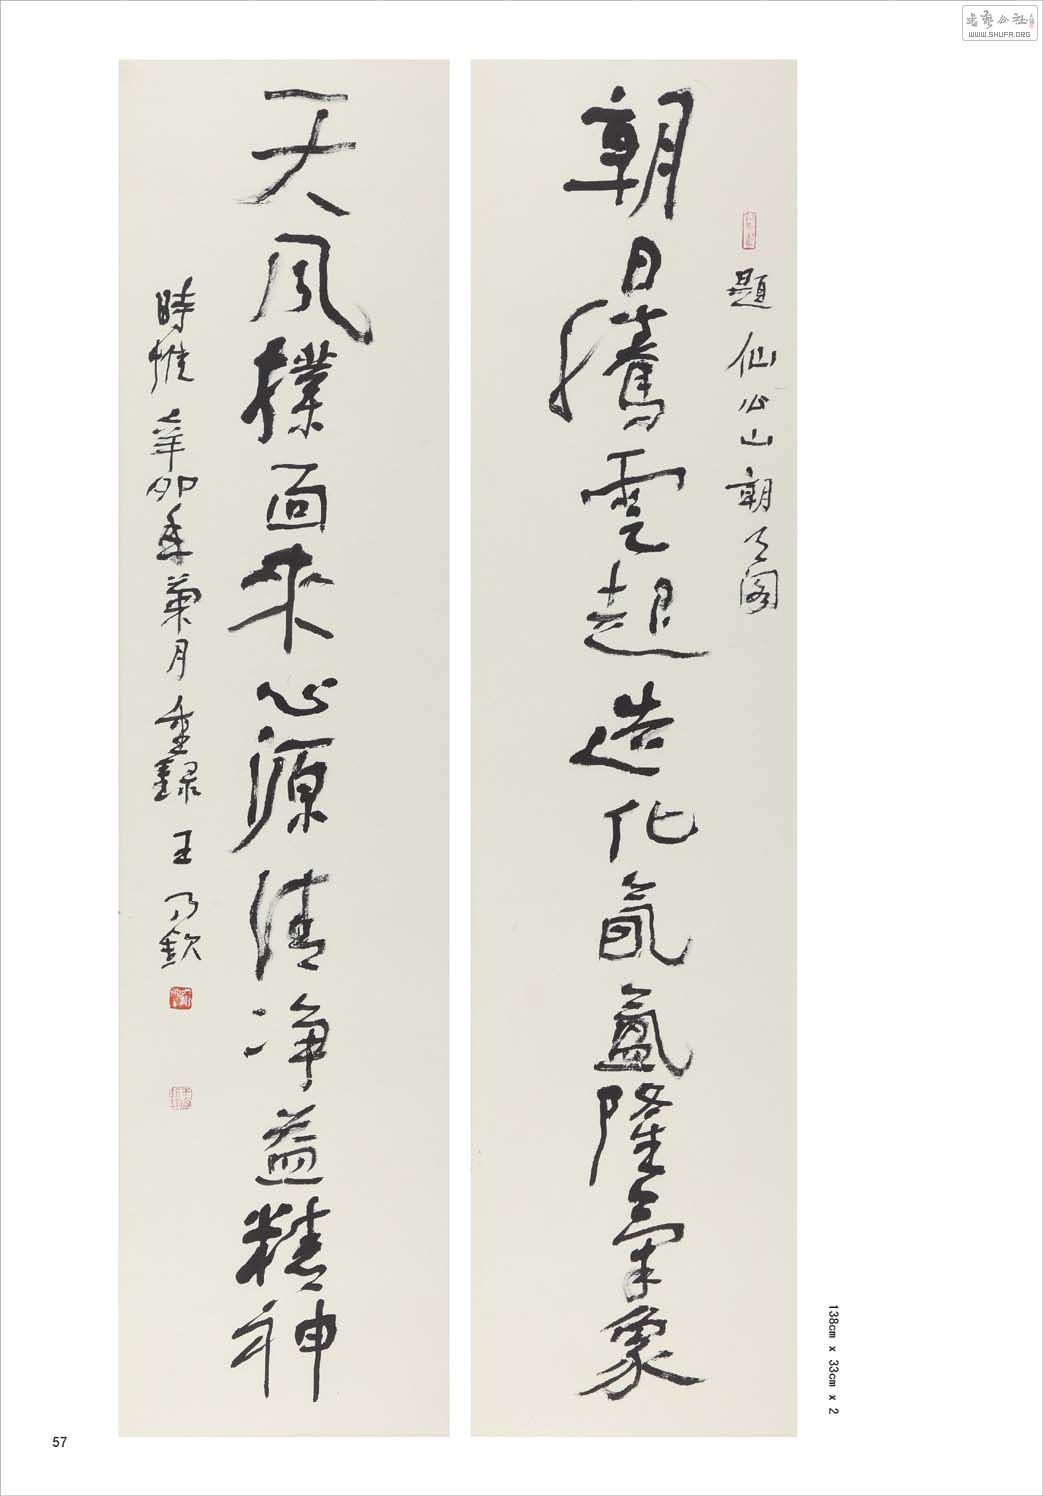 書藝公社
WWW.SHUFA.ORG
題仙公山朝天阁
朝日騰雲起造化氤氲隆氣象
天风撲面来心源清净益精神
時惟辛卯年菊月重録王乃欽
138cm x 33cm x 2
57